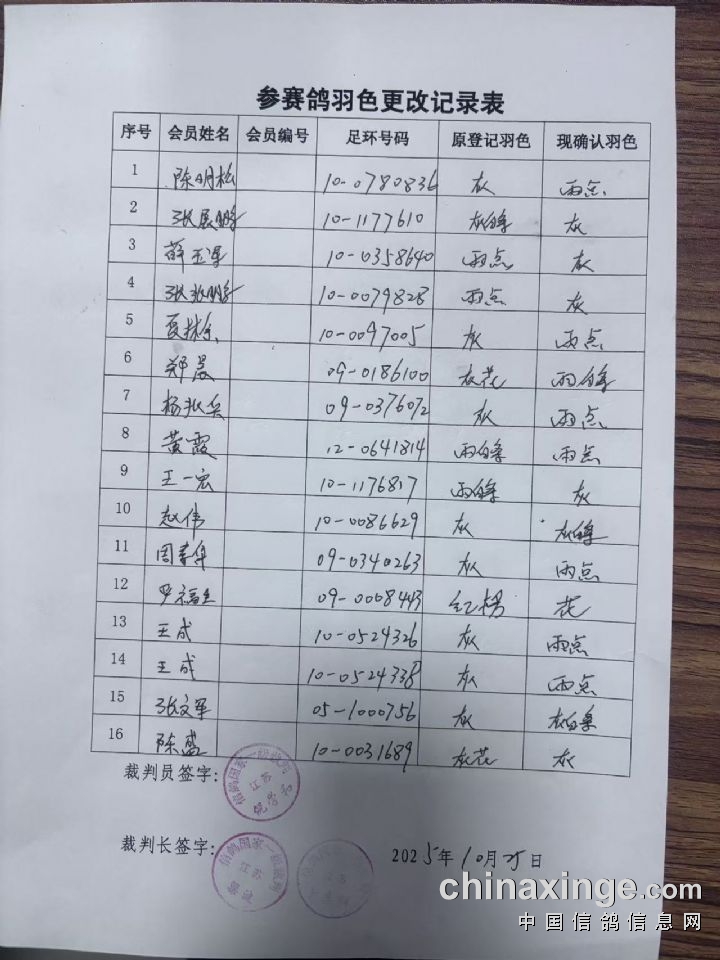 参赛鸽羽色更改记录表
序号 会员姓名 会员编号 足环号码 原登记羽色 现确认羽色
1 陈明松 10-0780836 灰 雨点
2 张展鹏 10-1177610 灰白条 灰
3 薛玉军 10-0358640 雨点 灰
4 张 鹏 10-0079828 雨点 灰
5 夏林 10-0097005 灰 雨点
6 郑晨 09-0186100 灰花 雨白条
7 杨 09-0376072 灰 雨点
8 黄霞 12-0641814 雨白条 雨点
9 王一宏 10-1176817 雨白条 灰
10 赵伟 10-0086629 灰 灰白条
11 周春华 09-0340263 灰 雨点
12 罗福 09-0008443 红楞 花
13 王成 10-0524326 灰 雨点
14 王成 10-0524338 灰 雨点
15 张文军 05-1000756 灰 灰白条
16 陈盛 10-0031689 灰花 灰
裁判员签字:
信鸽国家一级裁判
江苏
裁判长签字:
信鸽国家一级裁判
江苏
2025年10月25日
chinaxinge.com
中国信鸽信息网